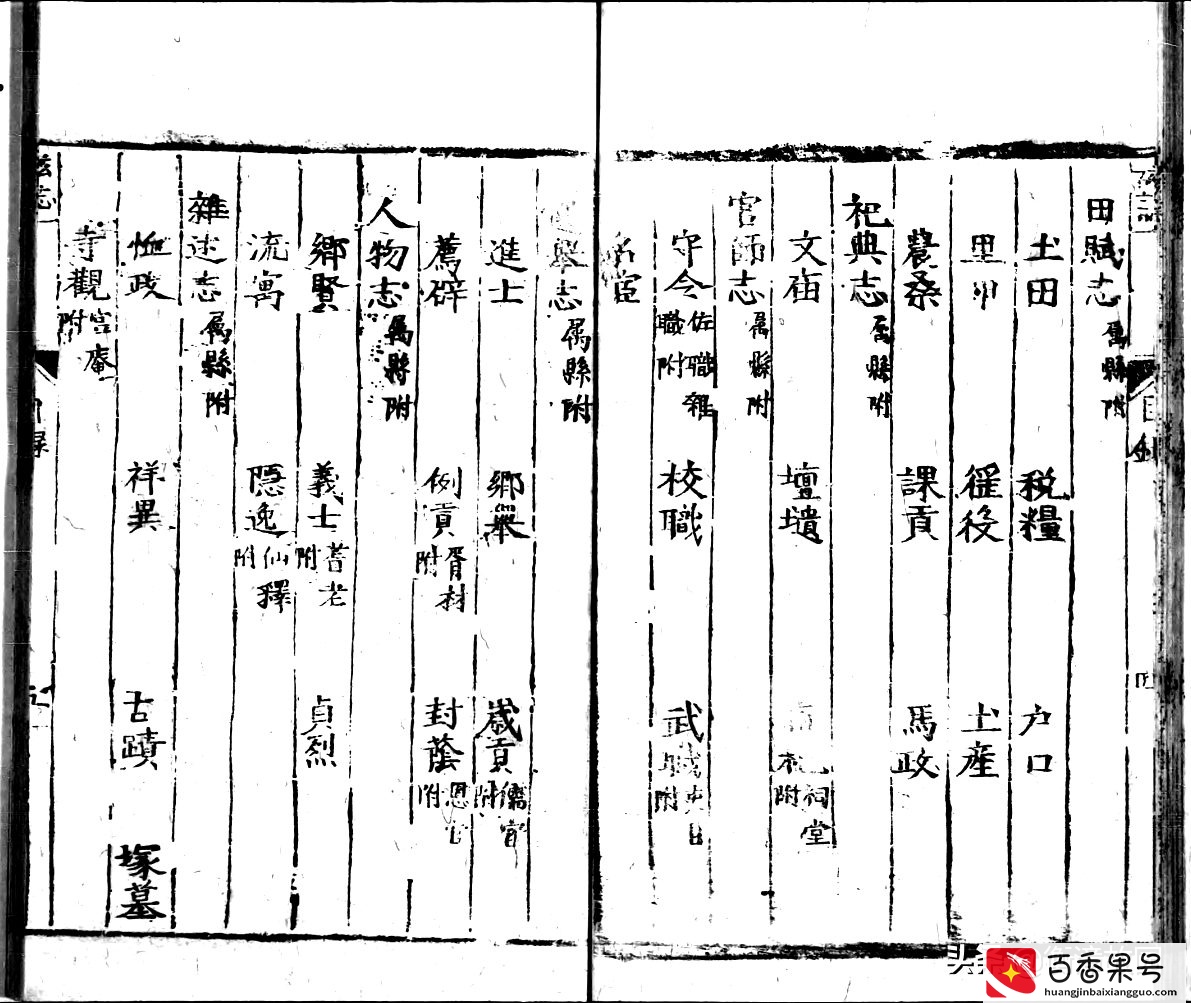 田賦志 屬縣附
土田 稅糧 户口
里甲 徭役 土産
農桑 課貢 馬政
祀典志 屬縣附
文庙 壇壝 祠堂附
官師志 屬縣附
守令 佐職雜職附 校職 武
名宦
舉志 屬縣附
進士 鄉舉 歲貢 儒官附
薦辟 例貢 胥材附 封蔭 恩官附
人物志 屬縣附
鄉賢 義士 耆老附 貞烈
流寓 隱逸 仙釋附
雜述志 屬縣附
恤政 祥異 古蹟 塚墓
寺觀 宫庵附
百香果号
huangjinbaixiangguo.com